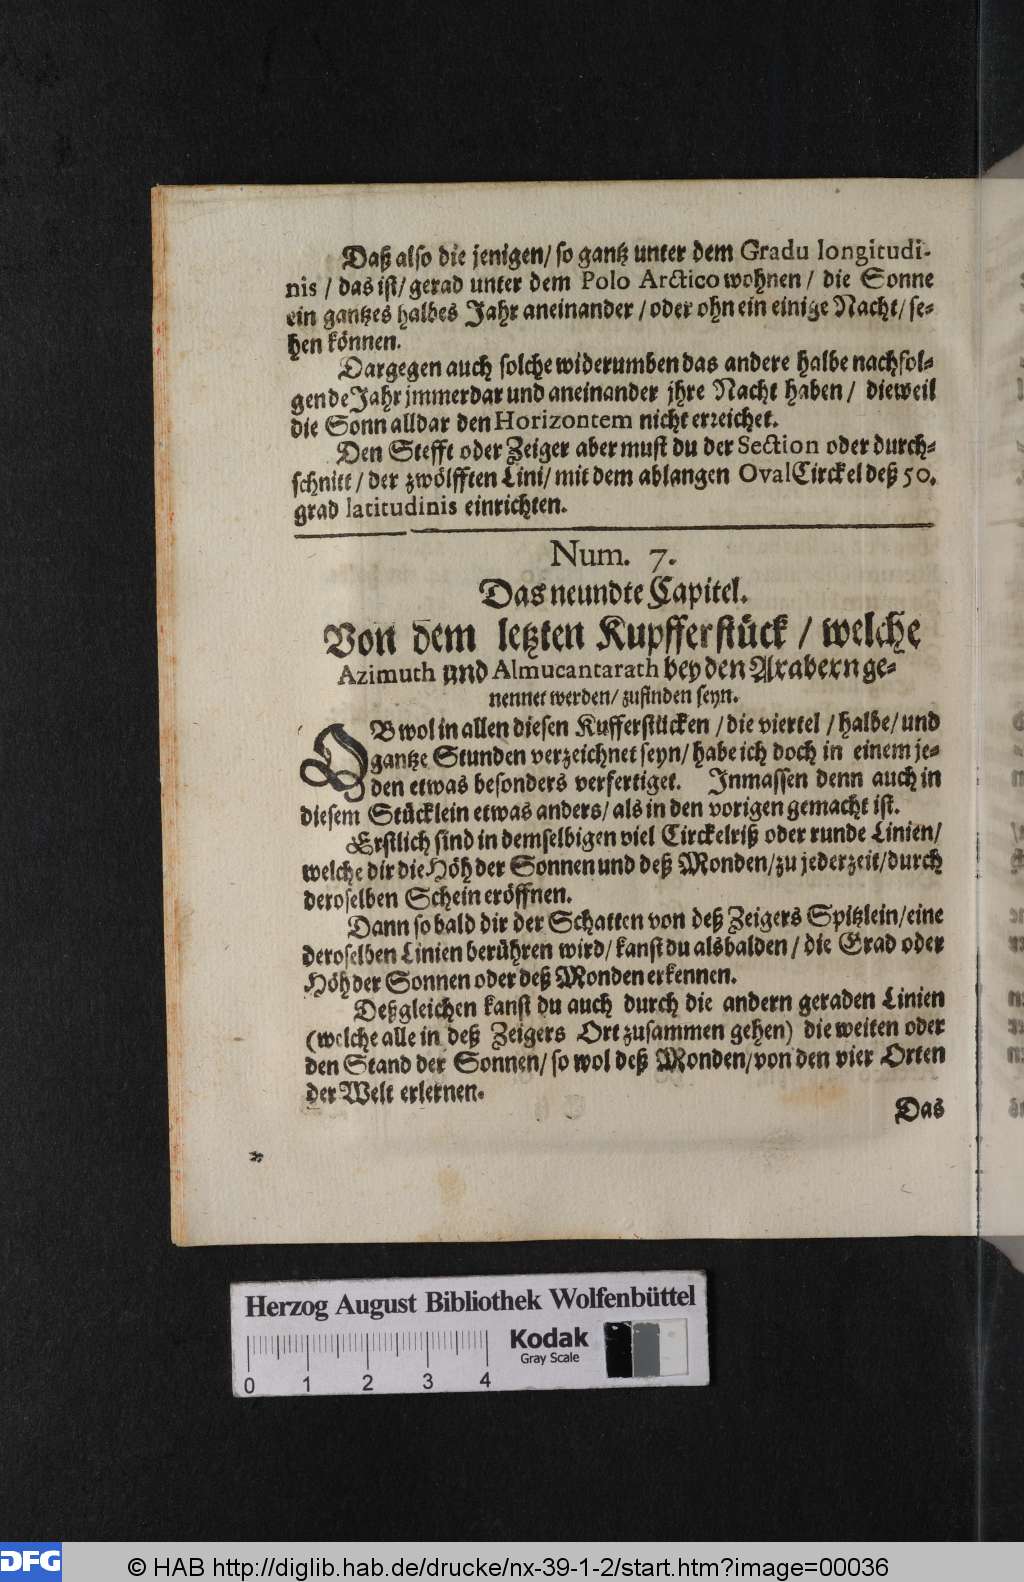 Daß also die jenigen/ so gantz unter dem Gradu longitudi-
nis / das ist/ gerad unter dem Polo Arctico wohnen / die Sonne
ein gantzes halbes Jahr aneinander / oder ohn ein einige Nacht/ se-
hen können.
Dargegen auch solche widerumben das andere halbe nachfol-
gende Jahr jmmerdar und aneinander jhre Nacht haben / dieweil
die Sonn alldar den Horizontem nicht erreichet.
Den Stefft oder Zeiger aber must du der Section oder durch-
schnitt / der zwölfften Lini/ mit dem ablangen Oval Circkel deß 50.
grad latitudinis einrichten.
Num. 7.
Das neundte Capitel.
Von dem letzten Kupfferstück / welche
Azimuth und Almucantarath bey den Arabern ge-
nennet werden/ zufinden seyn.
OB wol in allen diesen Kufferstücken / die viertel / halbe/ und
gantze Stunden verzeichnet seyn/ habe ich doch in einem je-
den etwas besonders verfertiget. Inmassen denn auch in
diesem Stücklein etwas anders/ als in den vorigen gemacht ist.
Erstlich sind in demselbigen viel Circkelriß oder runde Linien/
welche dir die Höh der Sonnen und deß Monden/ zu jederzeit/ durch
deroselben Schein eröffnen.
Dann so bald dir der Schatten von deß Zeigers Spitzlein/ eine
deroselben Linien berühren wird/ kanst du alsbalden / die Grad oder
Höh der Sonnen oder deß Monden erkennen.
Deßgleichen kanst du auch durch die andern geraden Linien
(welche alle in deß Zeigers Ort zusammen gehen) die weiten oder
den Stand der Sonnen/ so wol deß Monden/ von den vier Orten
der Welt erlernen.
Das
Herzog August Bibliothek Wolfenbüttel
Kodak
Gray Scale
0 1 2 3 4
DFG
© HAB http://diglib.hab.de/drucke/nx-39-1-2/start.htm?image=00036